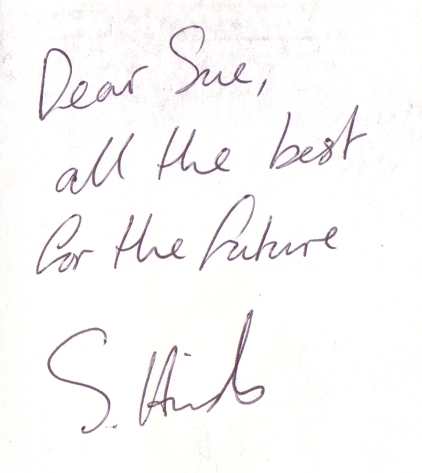 Dear Sue,
all the best
for the future
S. Hinds